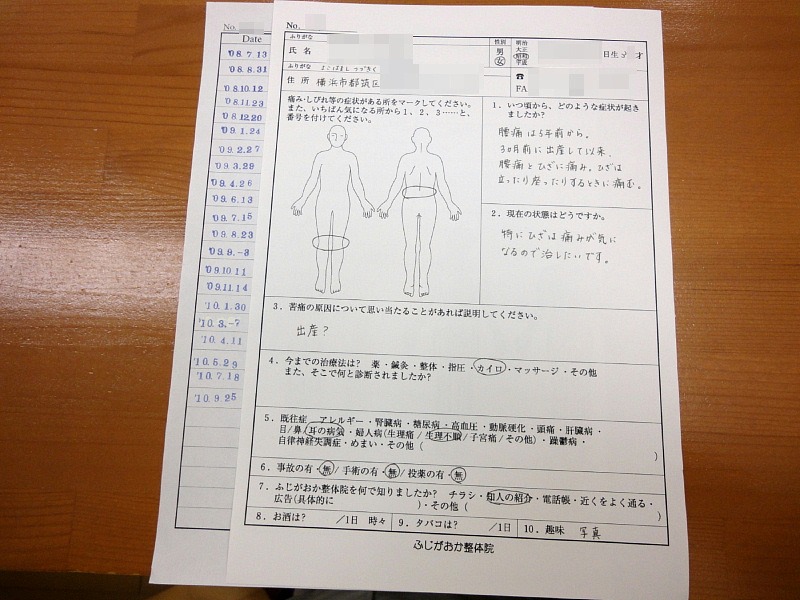 No.
Date
'08.7.13
'08.8.31
'08.10.12
'08.11.23
'08.12.20
'09.1.24
'09.2.27
'09.3.29
'09.4.26
'09.6.13
'09.7.15
'09.8.23
'09.9.-3
'09.10.11
'09.11.14
'10.1.30
'10.3.-7
'10.4.11
'10.5.29
'10.7.18
'10.9.25
No.
ふりがな
氏名
性別 男 女
明治 大正 昭和 平成
日生 才
ふりがな よこはまし つづきく
住所 横浜市都筑区
☎
FA
痛み・しびれ等の症状がある所をマークしてください。
また、いちばん気になる所から1、2、3……と、
番号を付けてください。
1．いつ頃から、どのような症状が起き
ましたか？
腰痛は5年前から。
3ヵ月前に出産して以来、
腰痛とひざに痛み。ひざは
立ったり座ったりするときに痛む。
2．現在の状態はどうですか。
特にひざは痛みが気に
なるので治したいです。
3．苦痛の原因について思い当たることがあれば説明してください。
出産？
4．今までの治療法は？ 薬・鍼灸・整体・指圧・カイロ・マッサージ・その他
また、そこで何と診断されましたか？
5．既往症 アレルギー・腎臓病・糖尿病・高血圧・動脈硬化・頭痛・肝臓病・
目/鼻/耳の病気・婦人病(生理痛/生理不順/子宮痛/その他)・躁鬱病・
自律神経失調症・めまい・その他( )
6．事故の有・無/手術の有・無/投薬の有・無
7．ふじがおか整体院を何で知りましたか？ チラシ・知人の紹介・電話帳・近くをよく通る・
広告(具体的に )・その他( )
8．お酒は？ /1日 時々 9．タバコは？ /1日 10．趣味 写真
ふじがおか整体院